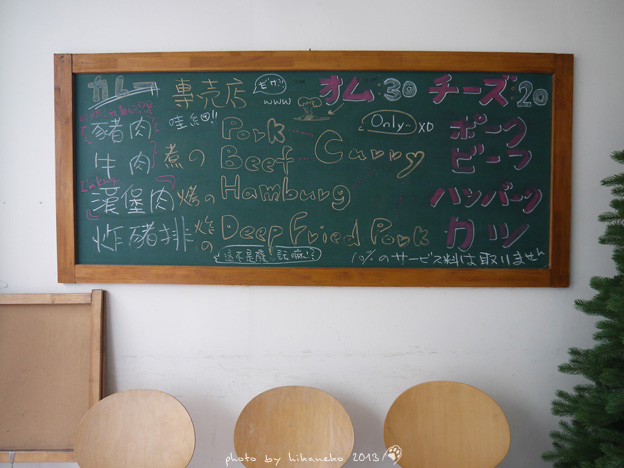 カレー 専売店 オム 30 チーズ 20
www
哇細!!
豬肉 Pork Only XD ポーク
牛肉 煮の Beef Curry ビーフ
漢堡肉 燒の Hamburg ハンバーグ
炸豬排 炸の Deep Fried Pork カツ
10%のサービス料は取りません
photo by hikaneko 2013